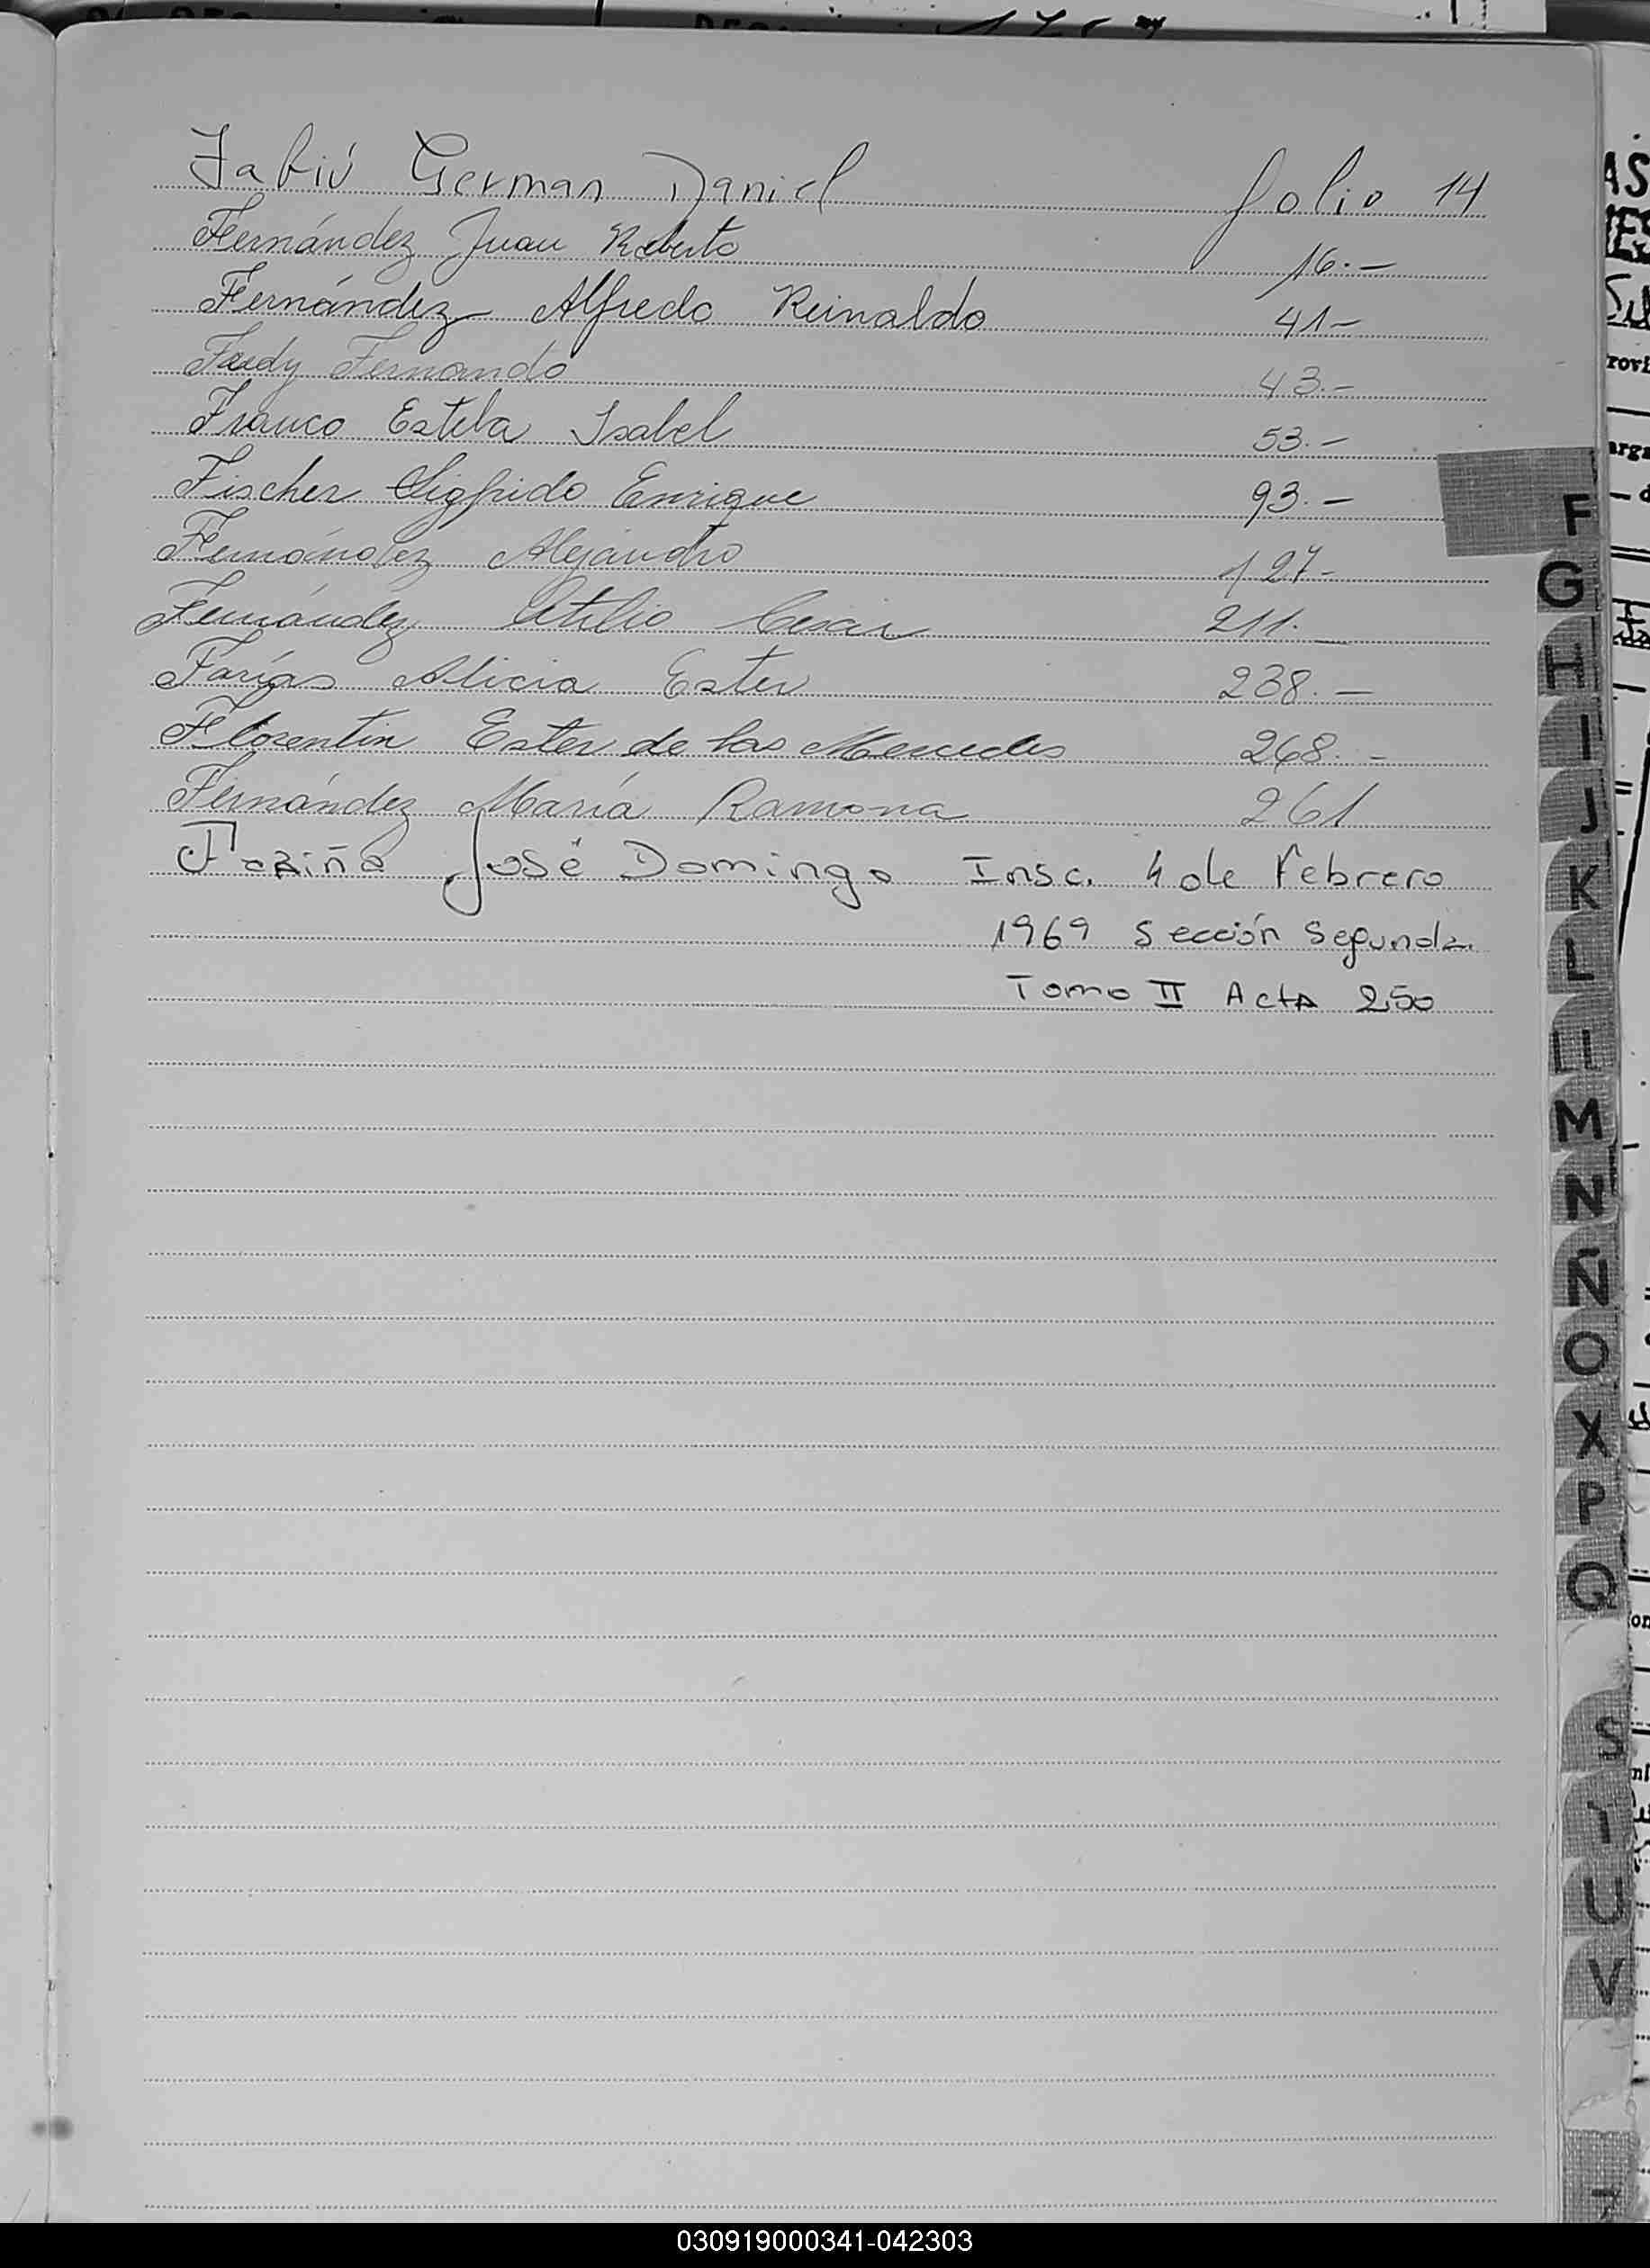 Fabiú German Daniel folio 14
Fernández Juan Roberto 16.-
Fernández Alfredo Reinaldo 41-
Fredy Fernando 43.-
Franco Estela Isabel 53.-
Fischer Sigfrido Enrique 93.-
Fernández Alejandro 127-
Fernández Atilio Cesar 211.-
Farías Alicia Ester 238.-
Florentin Ester de las Mercedes 268.-
Fernández María Ramona 261
Fariña José Domingo Insc. 4 de Febrero
1969 Sección Segunda.
Tomo II Acta 250
F
G
H
I
J
K
L
Ll
M
N
Ñ
O
X
P
Q
S
U
V
030919000341-042303